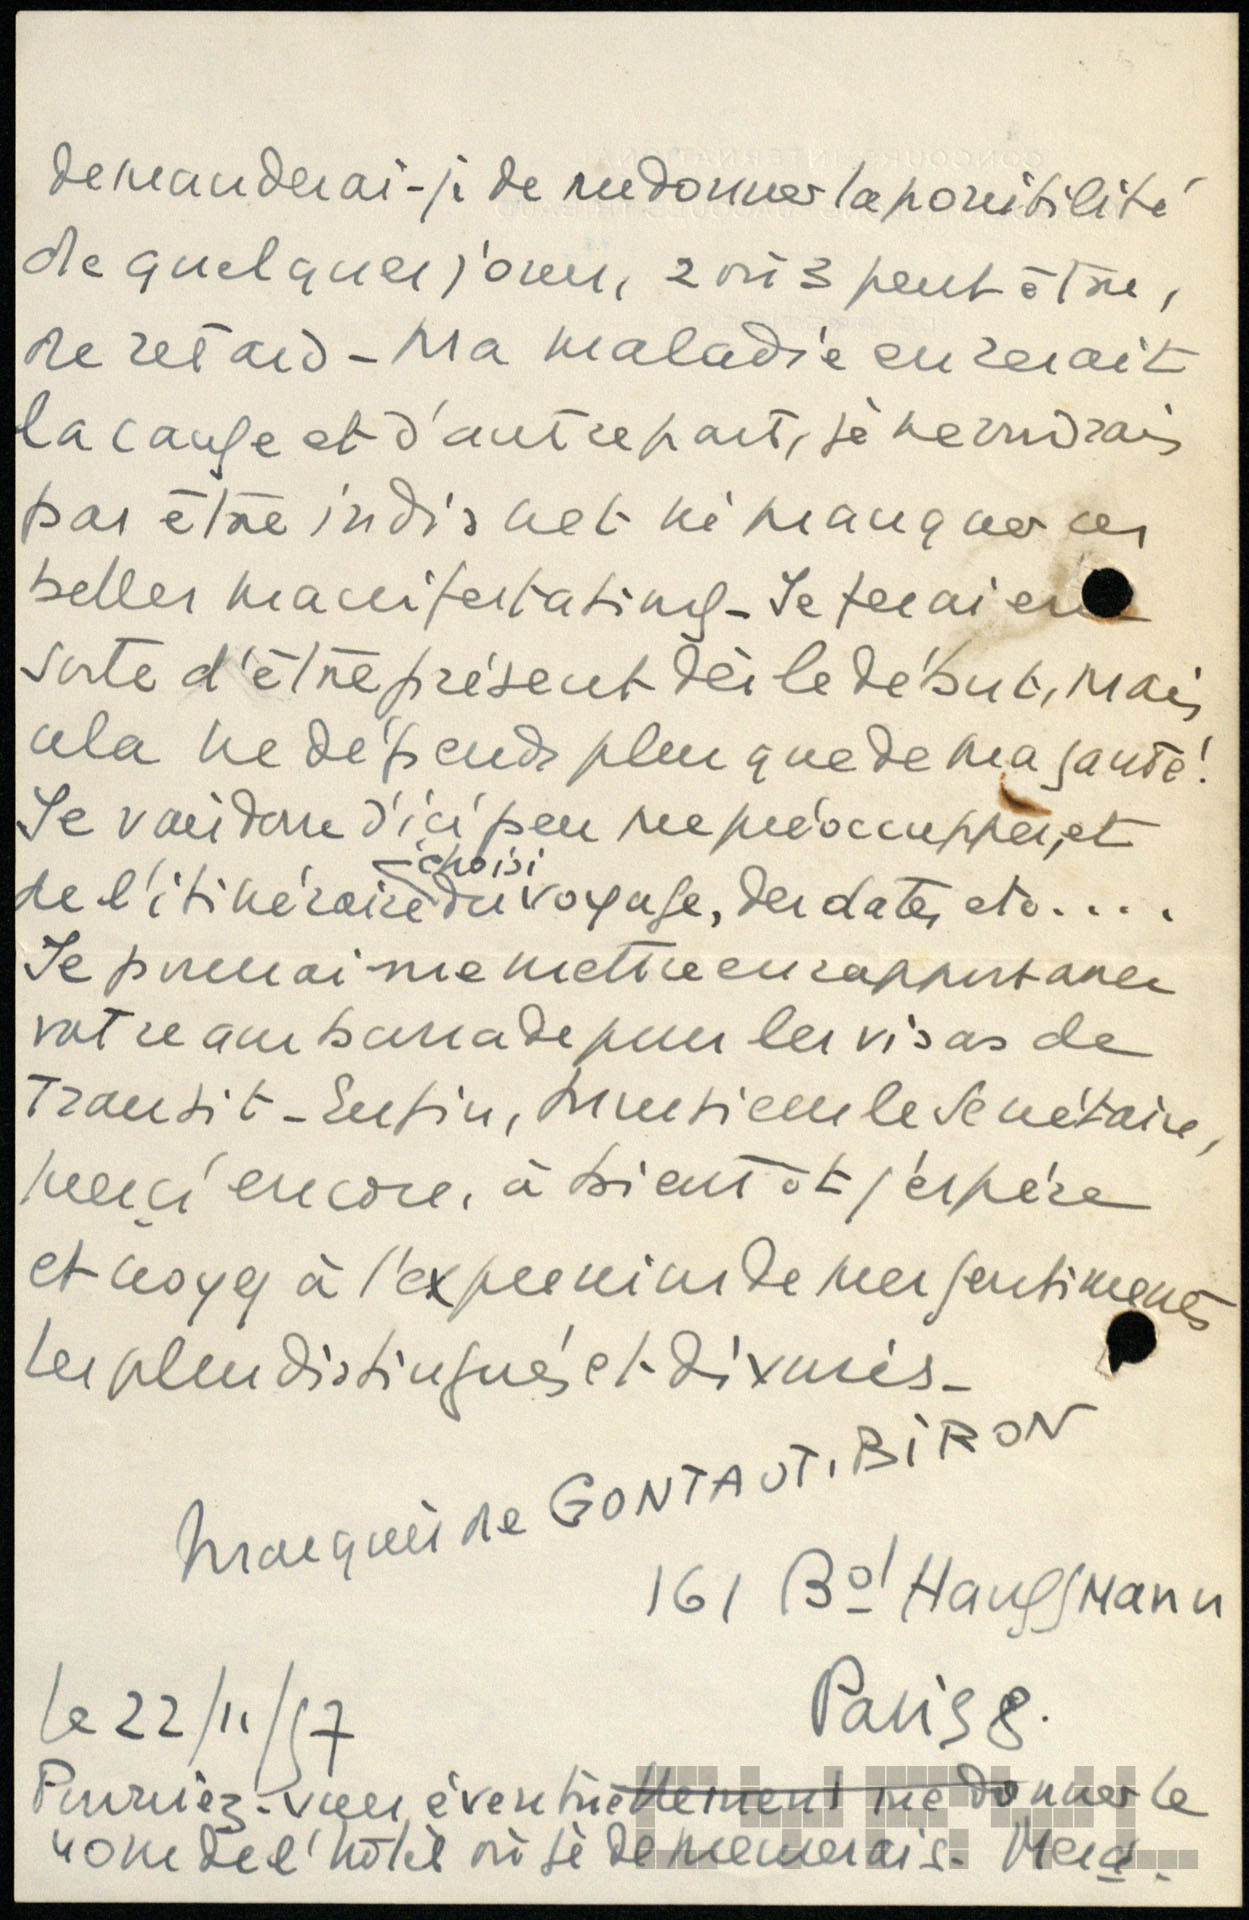 demanderai-je de me donner la possibilité
de quelques jours, 2 ou 3 peut être,
de retard - Ma maladie en serait
la cause et d'autre part, je ne voudrais
pas être indiscret ni manquer ces
belles manifestations - Je ferai en
sorte d'être présent dès le début, mais
cela ne dépends plus que de ma santé!
Je vais donc d'ici peu me préoccupper, et
de l'itinéraire choisi du voyage, des dates etc....
Je pourrai me mettre en rapport avec
votre ambassade pour les visas de
Transit - Enfin, Monsieur le Secrétaire,
merci encore, à bientôt j'espère
et croyez à l'expression de mes sentiments
les plus distingués et dévoués -
Marquis de GONTAUT. BIRON
161 Bd Haussmann
Paris 8.
le 22/11/57
Pourriez-vous éventuellement me donner le
nom de l'hôtel où je demeurerais. Merci.